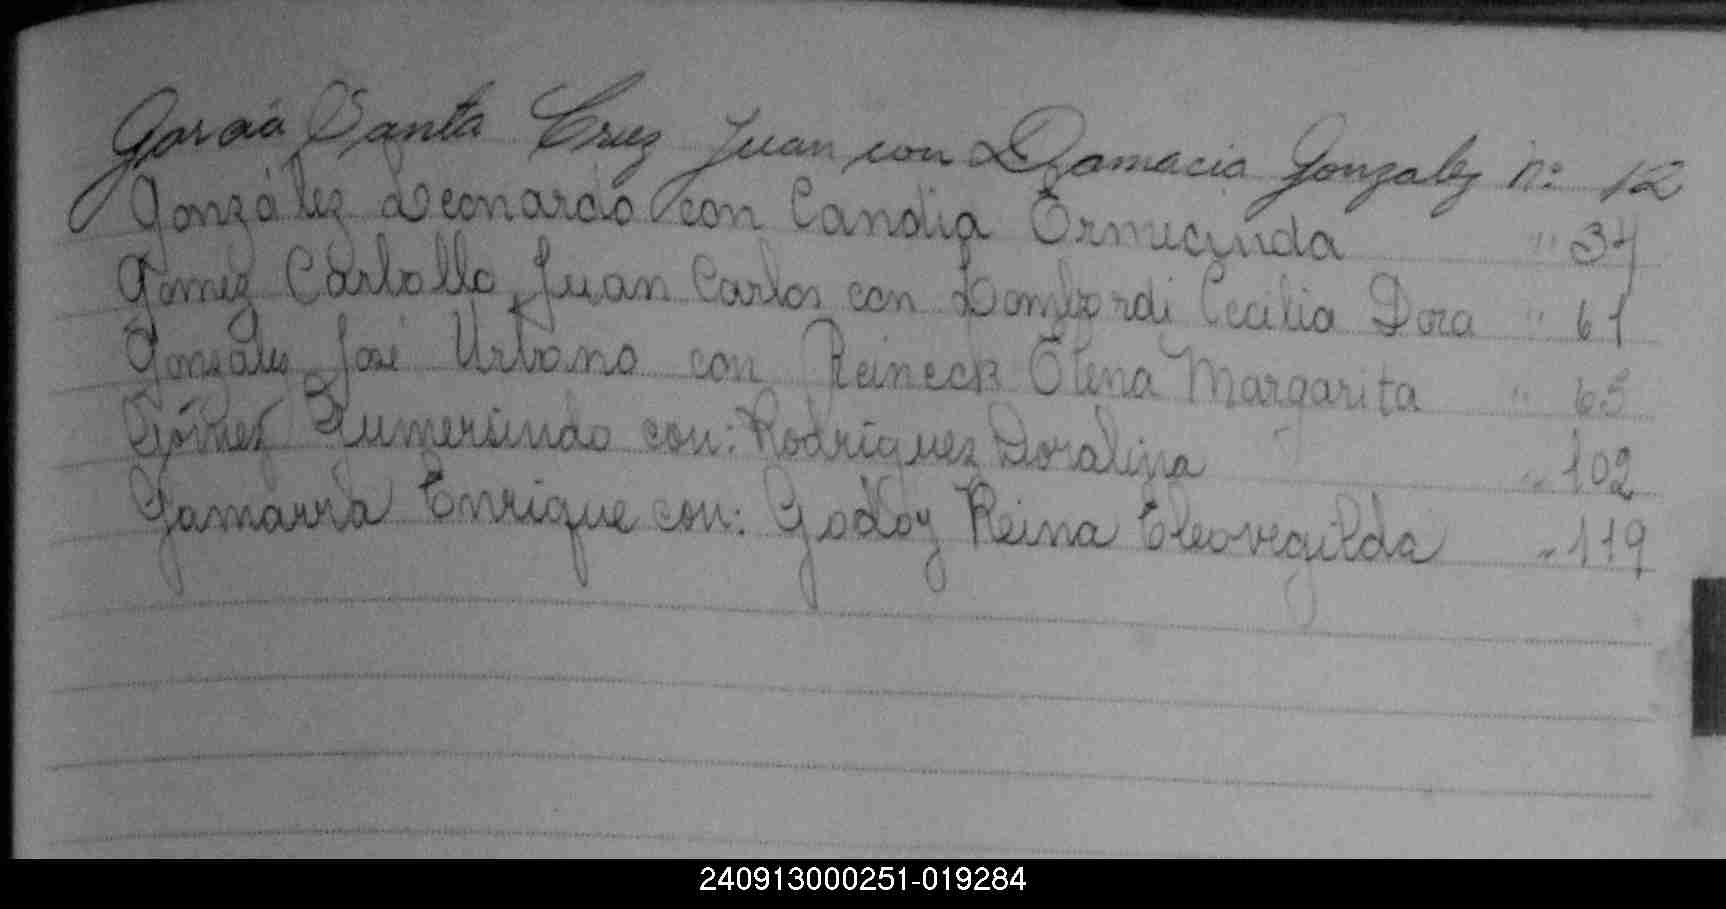 Garcia Santa Cruz Juan con Damacia Gonzalez nº 12
González Leonardo con Candia Ermecinda " 34
Gomez Carballo Juan Carlos con Lombardi Cecilia Dora " 61
Gonzalez José Urbano con Reineck Elena Margarita " 65
Gómez Gumersindo con: Rodríguez Doralina " 102
Gamarra Enrique con: Godoy Reina Cleovegilda " 119
240913000251-019284